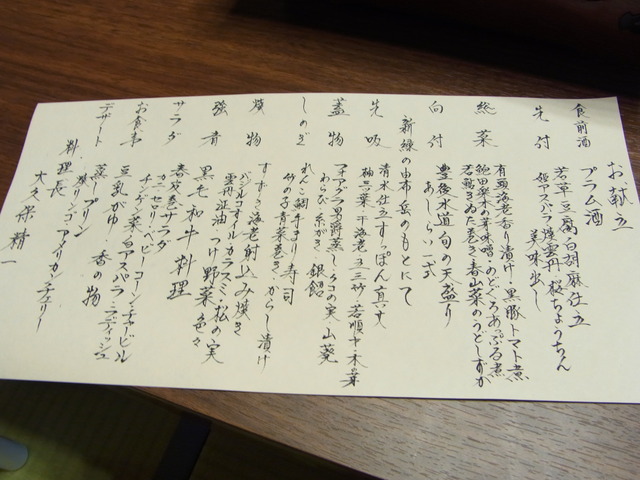 お献立
食前酒 プラム酒
先付 若草豆腐白胡麻仕立
姫アスパラ 煙雲丹 桜ちょうちん
美味出し
総菜 有頭海老香り漬け 黒豚トマト煮
飯田楽木の芽味噌 のどぐろあっぷる煮
若鶏きぬた巻き 春山菜のうとしずか
向付 豊後水道旬の天盛り
あしらい一式
新緑の由布岳のもとにて
先吸 清水仕立すっぽん真丈
柚 三つ葉 干海老 よ三竹 若順才 木の葉
蓋物 フォアグラ男爵蒸し タコの実 山葵
わらび 糸がき 銀餡
しのぎ れんこん鯛手まり寿司
竹の子青菜巻き からし漬け
焼物 すずき海老射込み焼き
バジルオイル カラスミ 松の実
雲丹正油 つけ野菜色々
強肴 黒毛和牛料理
サラダ 春炊巻サラダ
カニ セルリ ベビーコーン チャービル
チシャ菜 白アスパラ ラディッシュ
お食事 豆乳がゆ 香の物
デザート 蒸しプリン
焼リンゴ アメリカンチェリー
料理長
大久保精一